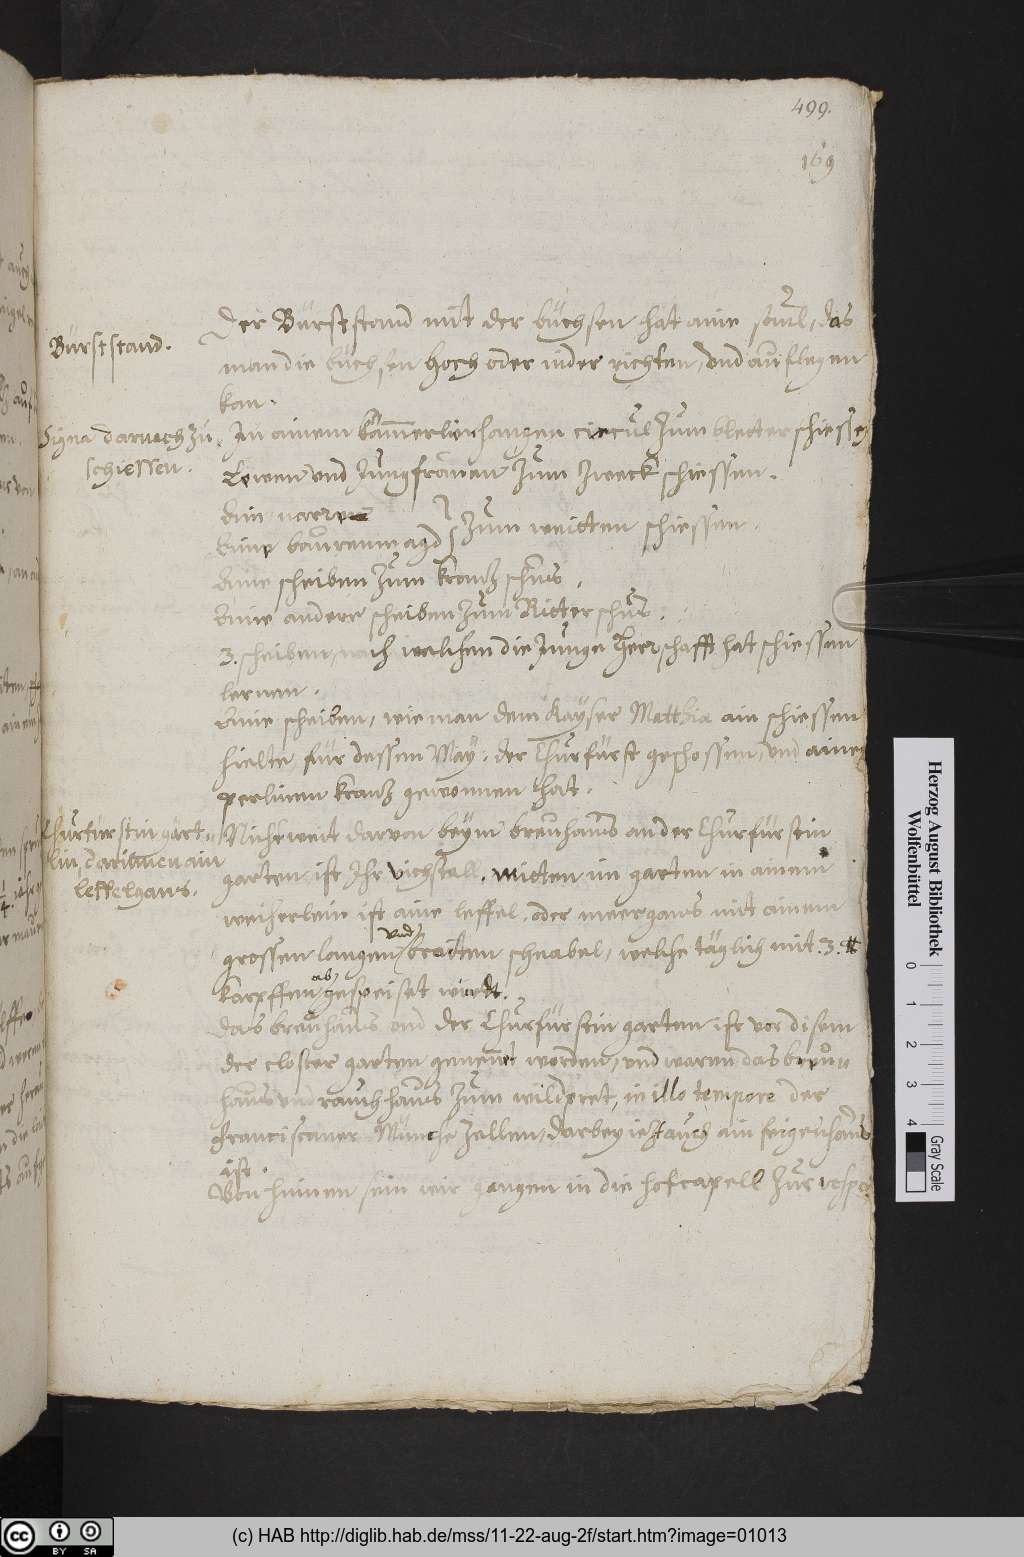 499.
169
Bürststand.
Der Bürststand mit der büchsen hat aine seül, das
man die büchsen hoch oder nider richten, vnd aufflegen
kan.
Signa darnach zu
schiessen.
In ainem kämmerlin hangen circul zum bletter schiessen
Lewen vnd Jungfrauen zum zweck schiessen.
Ein narr
Eine baurenmagd } zum weitten schiessen.
Eine scheiben zum krantz schus.
Eine andere scheiben zum Ritterschus.
3. scheiben, nach welchen die Junge Herrschafft hat schiessen
lernen.
Eine scheiben, wie man dem Kayser Matthia ain schiessen
hielte, für dessen May: der Churfürst geschossen, vnd ainen
perlinen krantz gewonnen hat.
Churfürstin gärt-
lin, darinnen ain
Leffelgans.
Nicht weit darvon beym breuhaus an der Churfürstin
garten, ist Ihr vichstall. mitten im garten in ainem
weiherlein ist aine leffel- oder meergans mit ainem
grossen langen vnd braiten schnabel, welche täglich mit .3. ℔
karpffen ab gespeiset wirdt.
Das breuhaus vnd der Churfürstin garten ist vor disem
der closter garten genent worden, vnd waren das breu
haus vnd rauchhaus zum wildpret, in illo tempore der
Franciscaner Münche zellen, darbey iezt auch ain feigenhaus
ist.
Von hinnen sein wir gangen in die hofcapell zur vesper
Herzog August Bibliothek
Wolfenbüttel
0 1 2 3 4
Gray Scale
cc BY SA
(c) HAB http://diglib.hab.de/mss/11-22-aug-2f/start.htm?image=01013